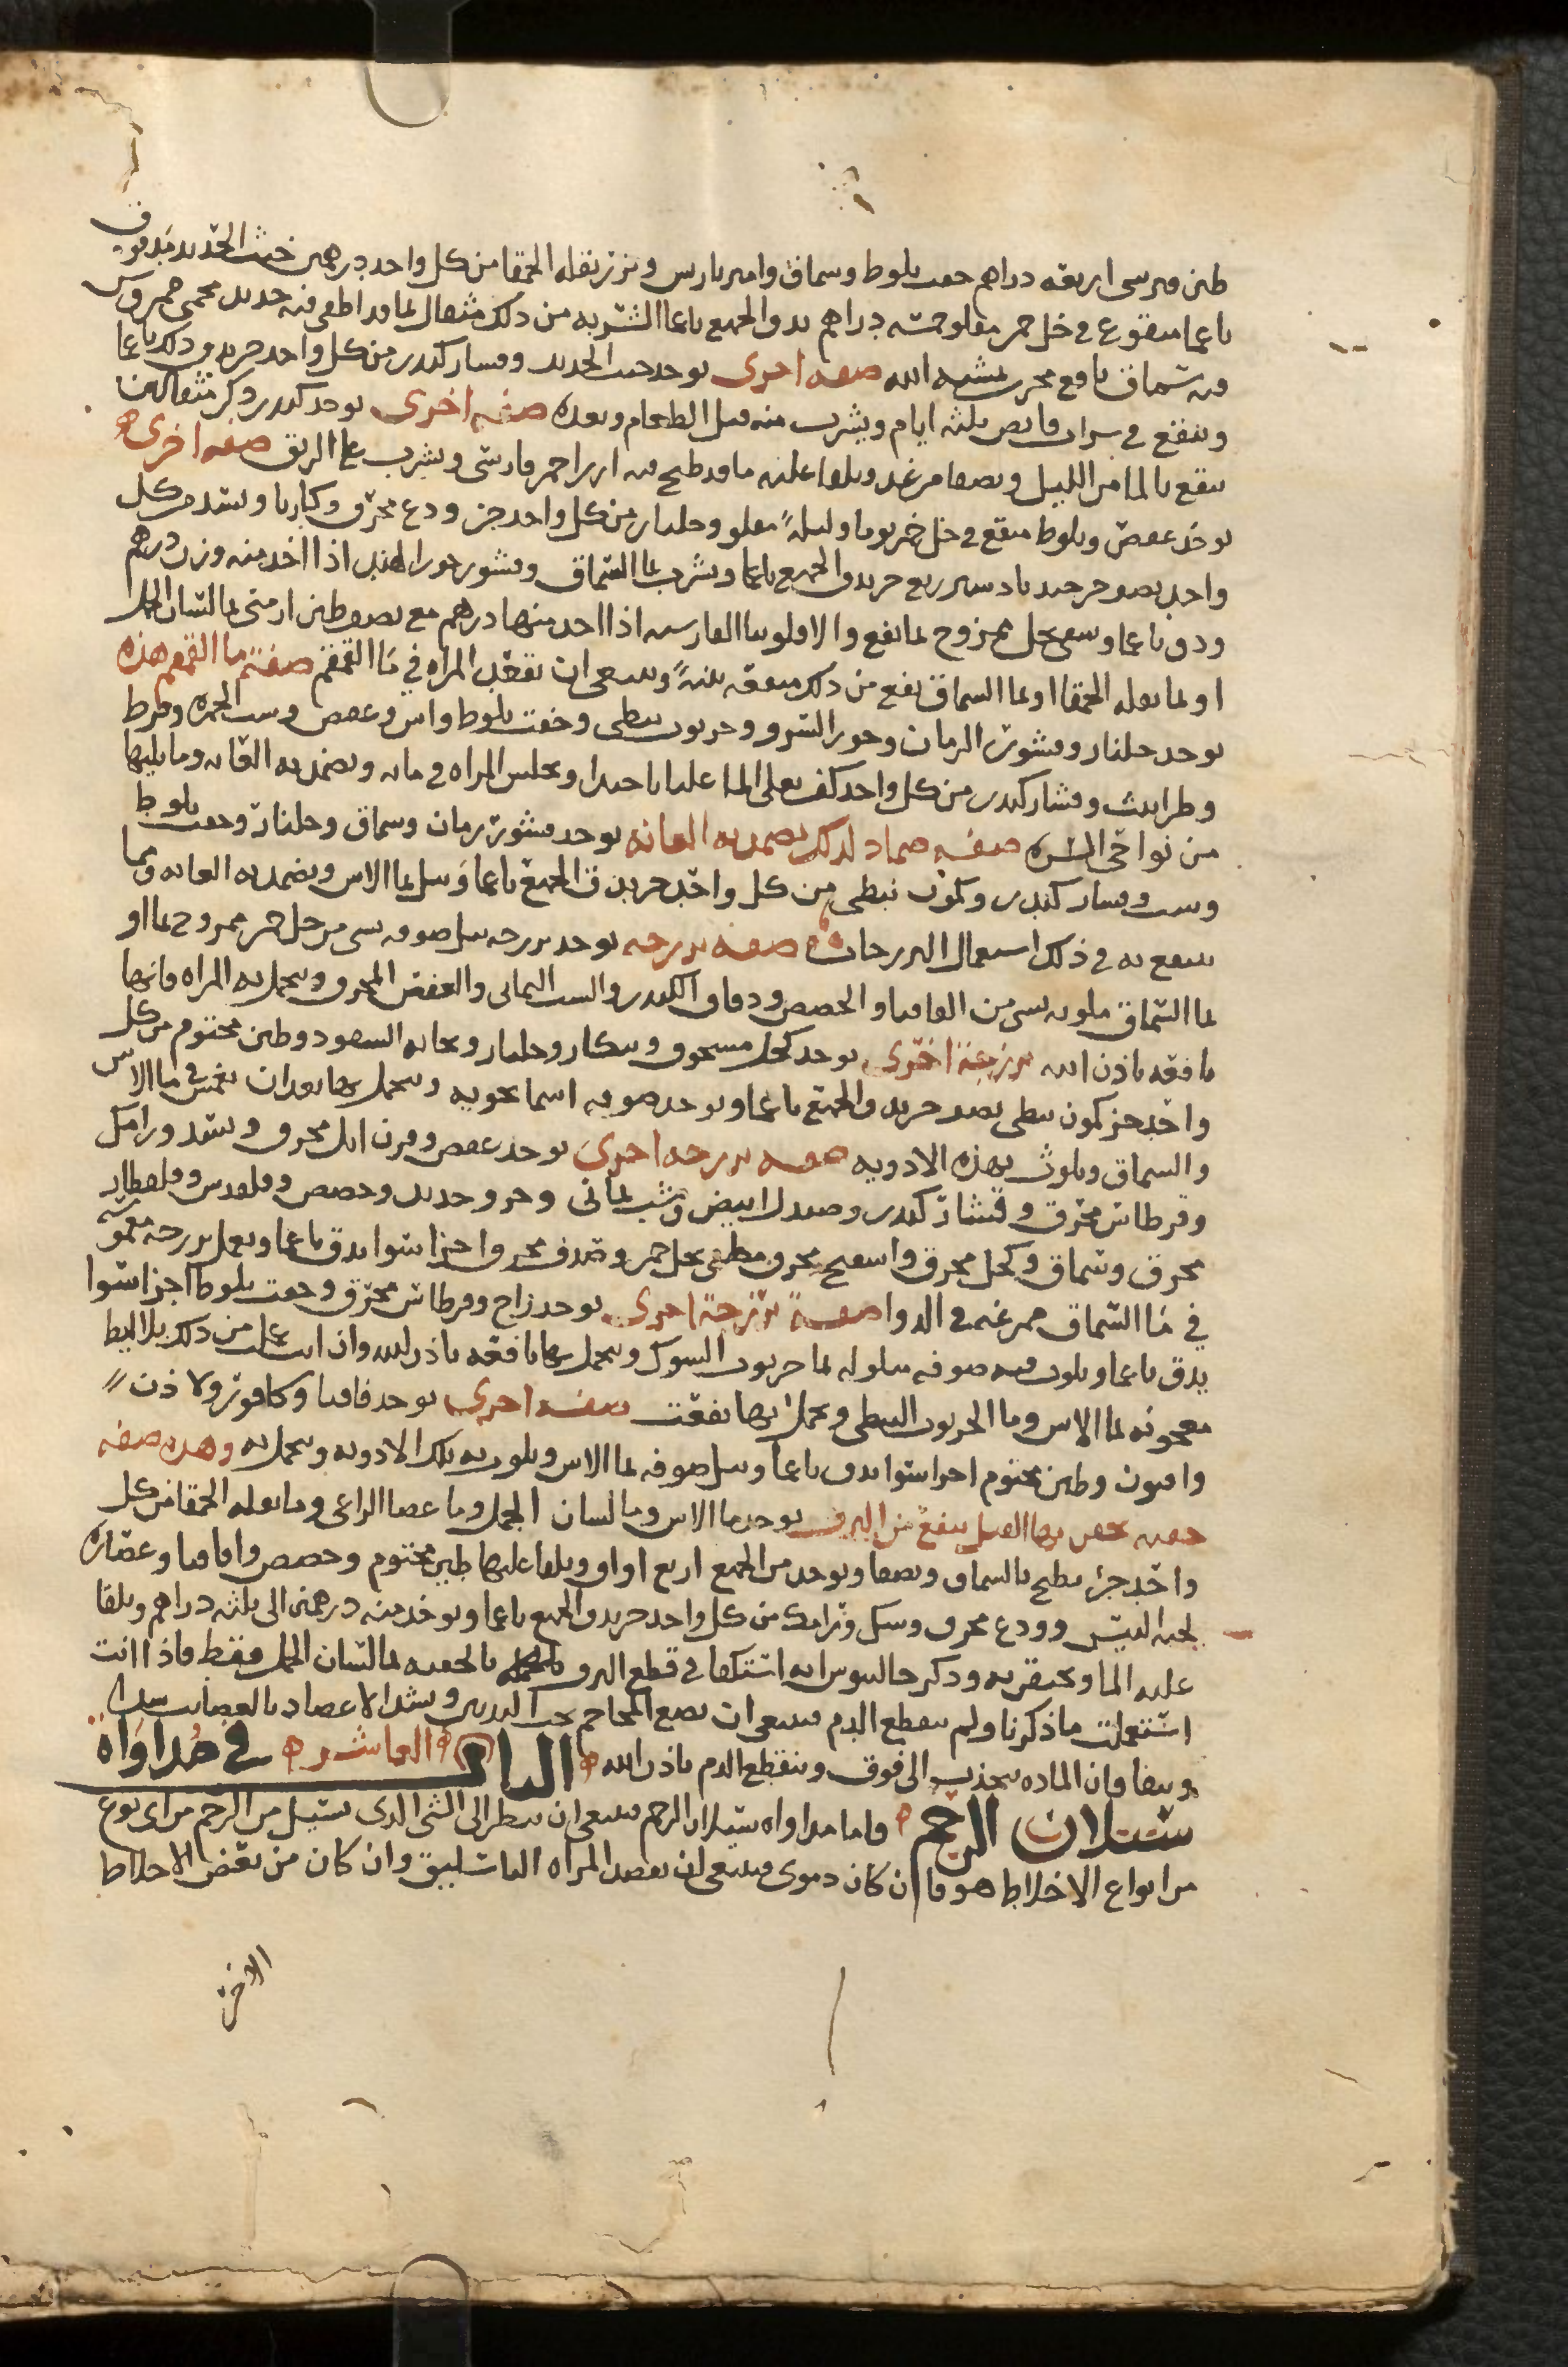 طين قبرسي اربعه دراهم جفت بلوط وسماق وامبرباريس وبزر بقله الحمقا من كل واحد درهمين خبث الحديد مدقوق
ناعما منقوع في خل خمر مقلو خمسه دراهم يدق الجميع ناعما الشربه من ذلك مثقال بما قد اطفى فيه حديد محمى ممروس
فيه سماق نافع مجرب بمشيه الله صفه اخرى يوخذ خبث الحديد وقشار كندر من كل واحد جزء يدق ذلك ناعما
وينقع في شراب قابض ثلثه ايام ويشرب منه قبل الطعام وبعده صفه اخرى يوخذ كندر وكر مثقالين
ينقع بالما من الليل ويصفا من غد ويلقا عليه ما قد طبخ فيه امير احمر فارسي ويشرب على الريق صفه اخرى
يوخذ عفص وبلوط منقع في خل خمر يوما وليلة مقلو وجلنار من كل واحد جز ودع محرق وكاربا وبسد من كل
واحد نصف جز جندبادستر ربع جز يدق الجميع ناعما ويشرب بما السماق وقشور جوز الهند اذا اخذ منه وزن درهم
ودق ناعما وسقي بخل ممزوج بما نفع والافلونيا الفارسيه اذا اخذ منها درهم مع نصف طين ارمني بما لسان الحمل
او بما بقله الحمقا او بما السماق نفع من ذلك منفعه بينة وينبغي ان تقعد المراه في ما القمقم صفة ما القمقم هذه
يوخذ جلنار وقشور الرمان وجوز السرو وخرنوب نبطي وجفت بلوط واس وعفص وشب الحمره وقرط
وطراثيث وقشار كندر من كل واحد كف يغلى بالما غليانا جيدا وتجلس المراه في مايه ويضمد به العانه وما يليها
من نواحي السره صفه ضماد لذلك يضمد به العانه يوخذ قشور رمان وسماق وجلنار وجفت بلوط
وشب وقشار كندر وكمون نبطي من كل واحد جز يدق الجميع ناعما ويبل بما الاس ويضمد به العانه ومما
ينتفع به في ذلك استعمال البرزجات صفه برزجه يوخذ برزجه تبل صوفه بشي من خل خمر ممزوج بما او
بما السماق ملوثه بشي من القاقيا والحضض ودقاق الكندر والشب اليماني والعفص المحرق ويتحمل به المراه فانها
نافعه باذن الله برزجة اخرى يوخذ كحل مسحوق وسكار وجلنار ونخاله السفود وطين مختوم من كل
واحد جز كمون نبطي نصف جز يدق الجميع ناعما ويوخذ صوفه اسمانجونيه ويتحمل بها بعد ان تغمس في ما الاس
والسماق ويلوث بهذه الادويه صفه برزجه اخرى يوخذ عفص وقرن ايل محرق وبسد ورامك
وقرطاس محرق وقشار كندر وصندل ابيض وشب يماني وخرو حديد وحضض وقلقديس وقلقطار
محرق وسماق وكحل محرق واسفنج محرق مطفي بخل خمر وصدف محرق اجزا سوا يدق ناعما ويعمل برزجه مغموسه
في ما السماق ممرغه في الدوا صفة برزجة اخرى يوخذ زاج وقرطاس محرق وجفت بلوط اجزا سوا
يدق ناعما ويلوث فيه صوفه مبلوله بما خرنوب الشوك ويتحمل بها نافعه باذن الله وان استعمل من ذلك بلاليط
معجونه بما الاس وما الخرنوب النبطي وتحمل بها نفعت صفه اخرى يوخذ قاقيا وكافور ولاذن
وافيون وطين مختوم اجزا سوا يدق ناعما وتبل صوفه بما الاس ويلوث به تلك الادويه ويتحمل به وهذه صفه
حقنه يحقن بها القبل ينفع من النزف يوخذ ما الاس وما لسان الحمل وما عصا الراعي وما بقله الحمقا من كل
واحد جزء يطبخ بالسماق ويصفا ويوخذ من الجميع اربع اواق ويلقا عليها طين مختوم وحضض واقاقيا وعصاره
لحيه التيس وودع محرق وسك ورامك من كل واحد جز يدق الجميع ناعما ويوخذ منه درهمين الى ثلثه دراهم ويلقا
عليه الما ويحتقن به وذكر جالينوس انه اكتفا في قطع النزف بالحقنه بما لسان الحمل فقط فاذا انت
استعملت ما ذكرنا ولم ينقطع الدم فينبغي ان تضع المحاجم تحت الثديين وتشد الاعضاد بالعصايب شدا
وثيقا فان الماده تنجذب الى فوق وينقطع الدم باذن الله الباب العاشر في مداواه
سيلان الرحم فاما مداواه سيلان الرحم فينبغي ان ينظر الى الشي الذي يسيل من الرحم من اي نوع
من انواع الاخلاط هو فان كان دموي فينبغي ان تفصد المراه الباسليق وان كان من بعض الاخلاط
الاخر